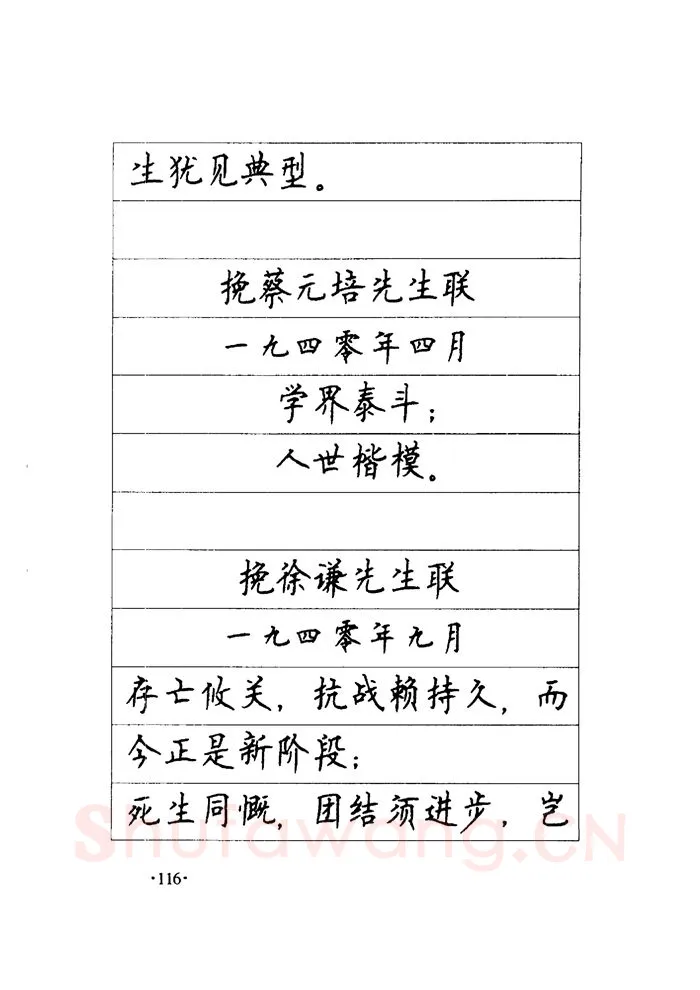 生犹见典型。
挽蔡元培先生联
一九四零年四月
学界泰斗；
人世楷模。
挽徐谦先生联
一九四零年九月
存亡攸关，抗战赖持久，而
今正是新阶段；
死生同慨，团结须进步，岂
Shufawang.CN
·116·